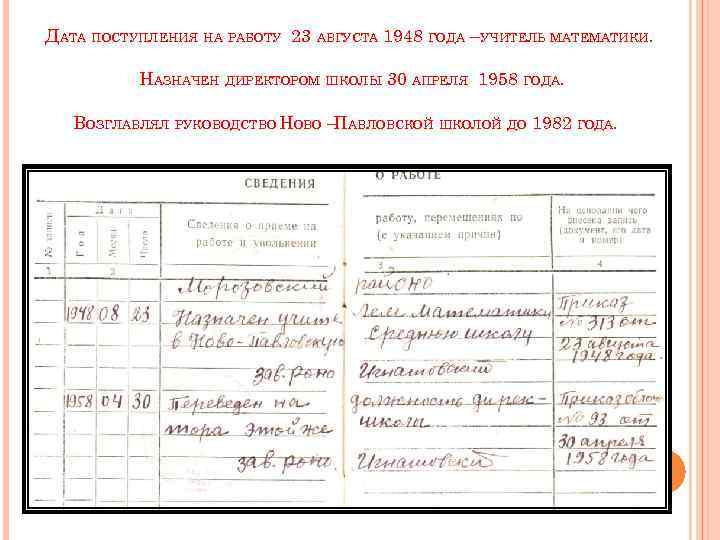 ДАТА ПОСТУПЛЕНИЯ НА РАБОТУ 23 АВГУСТА 1948 ГОДА –УЧИТЕЛЬ МАТЕМАТИКИ.
НАЗНАЧЕН ДИРЕКТОРОМ ШКОЛЫ 30 АПРЕЛЯ 1958 ГОДА.
ВОЗГЛАВЛЯЛ РУКОВОДСТВО НОВО –ПАВЛОВСКОЙ ШКОЛОЙ ДО 1982 ГОДА.
СВЕДЕНИЯ
О РАБОТЕ
№ записи
Дата
Год
Месяц
Число
Сведения о приеме на
работе и увольнении
работу, перемещениях по
(с указанием причин)
На основании чего
внесена запись
(документ, его дата
и номер)
1 2 3 4
Морозовский районо
1948 08 23 Назначен учите лем математики Приказ
в Ново-Павловскую среднюю школу № 313 от
23 августа
1948 года.
зав. роно Игнатовский
1958 04 30 Переведен на должность дирек- Приказ облоно
тора этой же школы № 93 от
30 апреля
зав. роно Игнатовский 1958 года